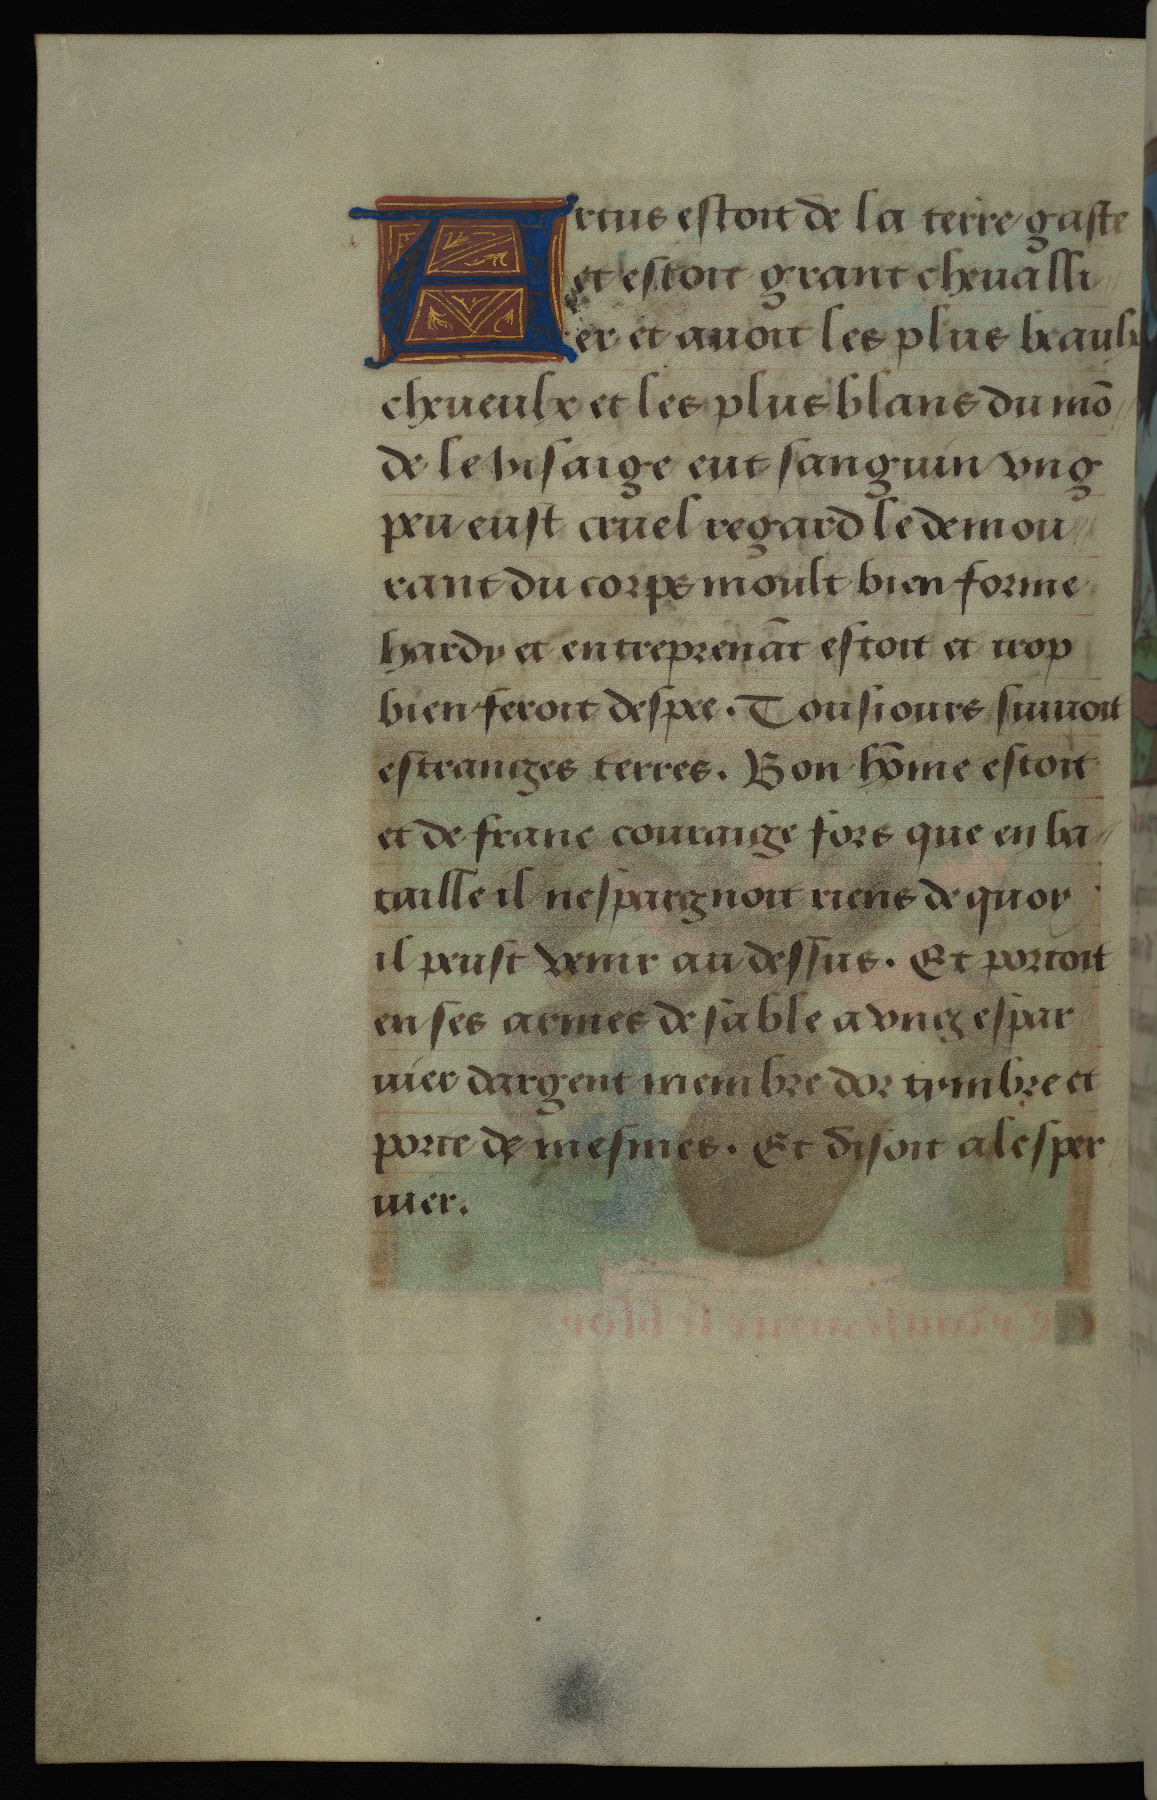 Artus estoit de la terre gaste
et estoit grant cheualli
er et auoit les plus beaulx
cheueulx et les plus blans du mō
de le visaige eut sanguin vng
peu eust cruel regard le demou
rant du corps moult bien forme
hardy et entreprenāt estoit et trop
bien feroit despee. Tousiours suiuoit
estranges terres. Bon hōme estoit
et de franc couraige fors que en ba
taille il nespargnoit riens de quoy
il peust venir au dessus. Et portoit
en ses armes de sable a vng espar
uier dargent membre dor tymbre et
porte de mesmes. Et disoit a lesper
uier.